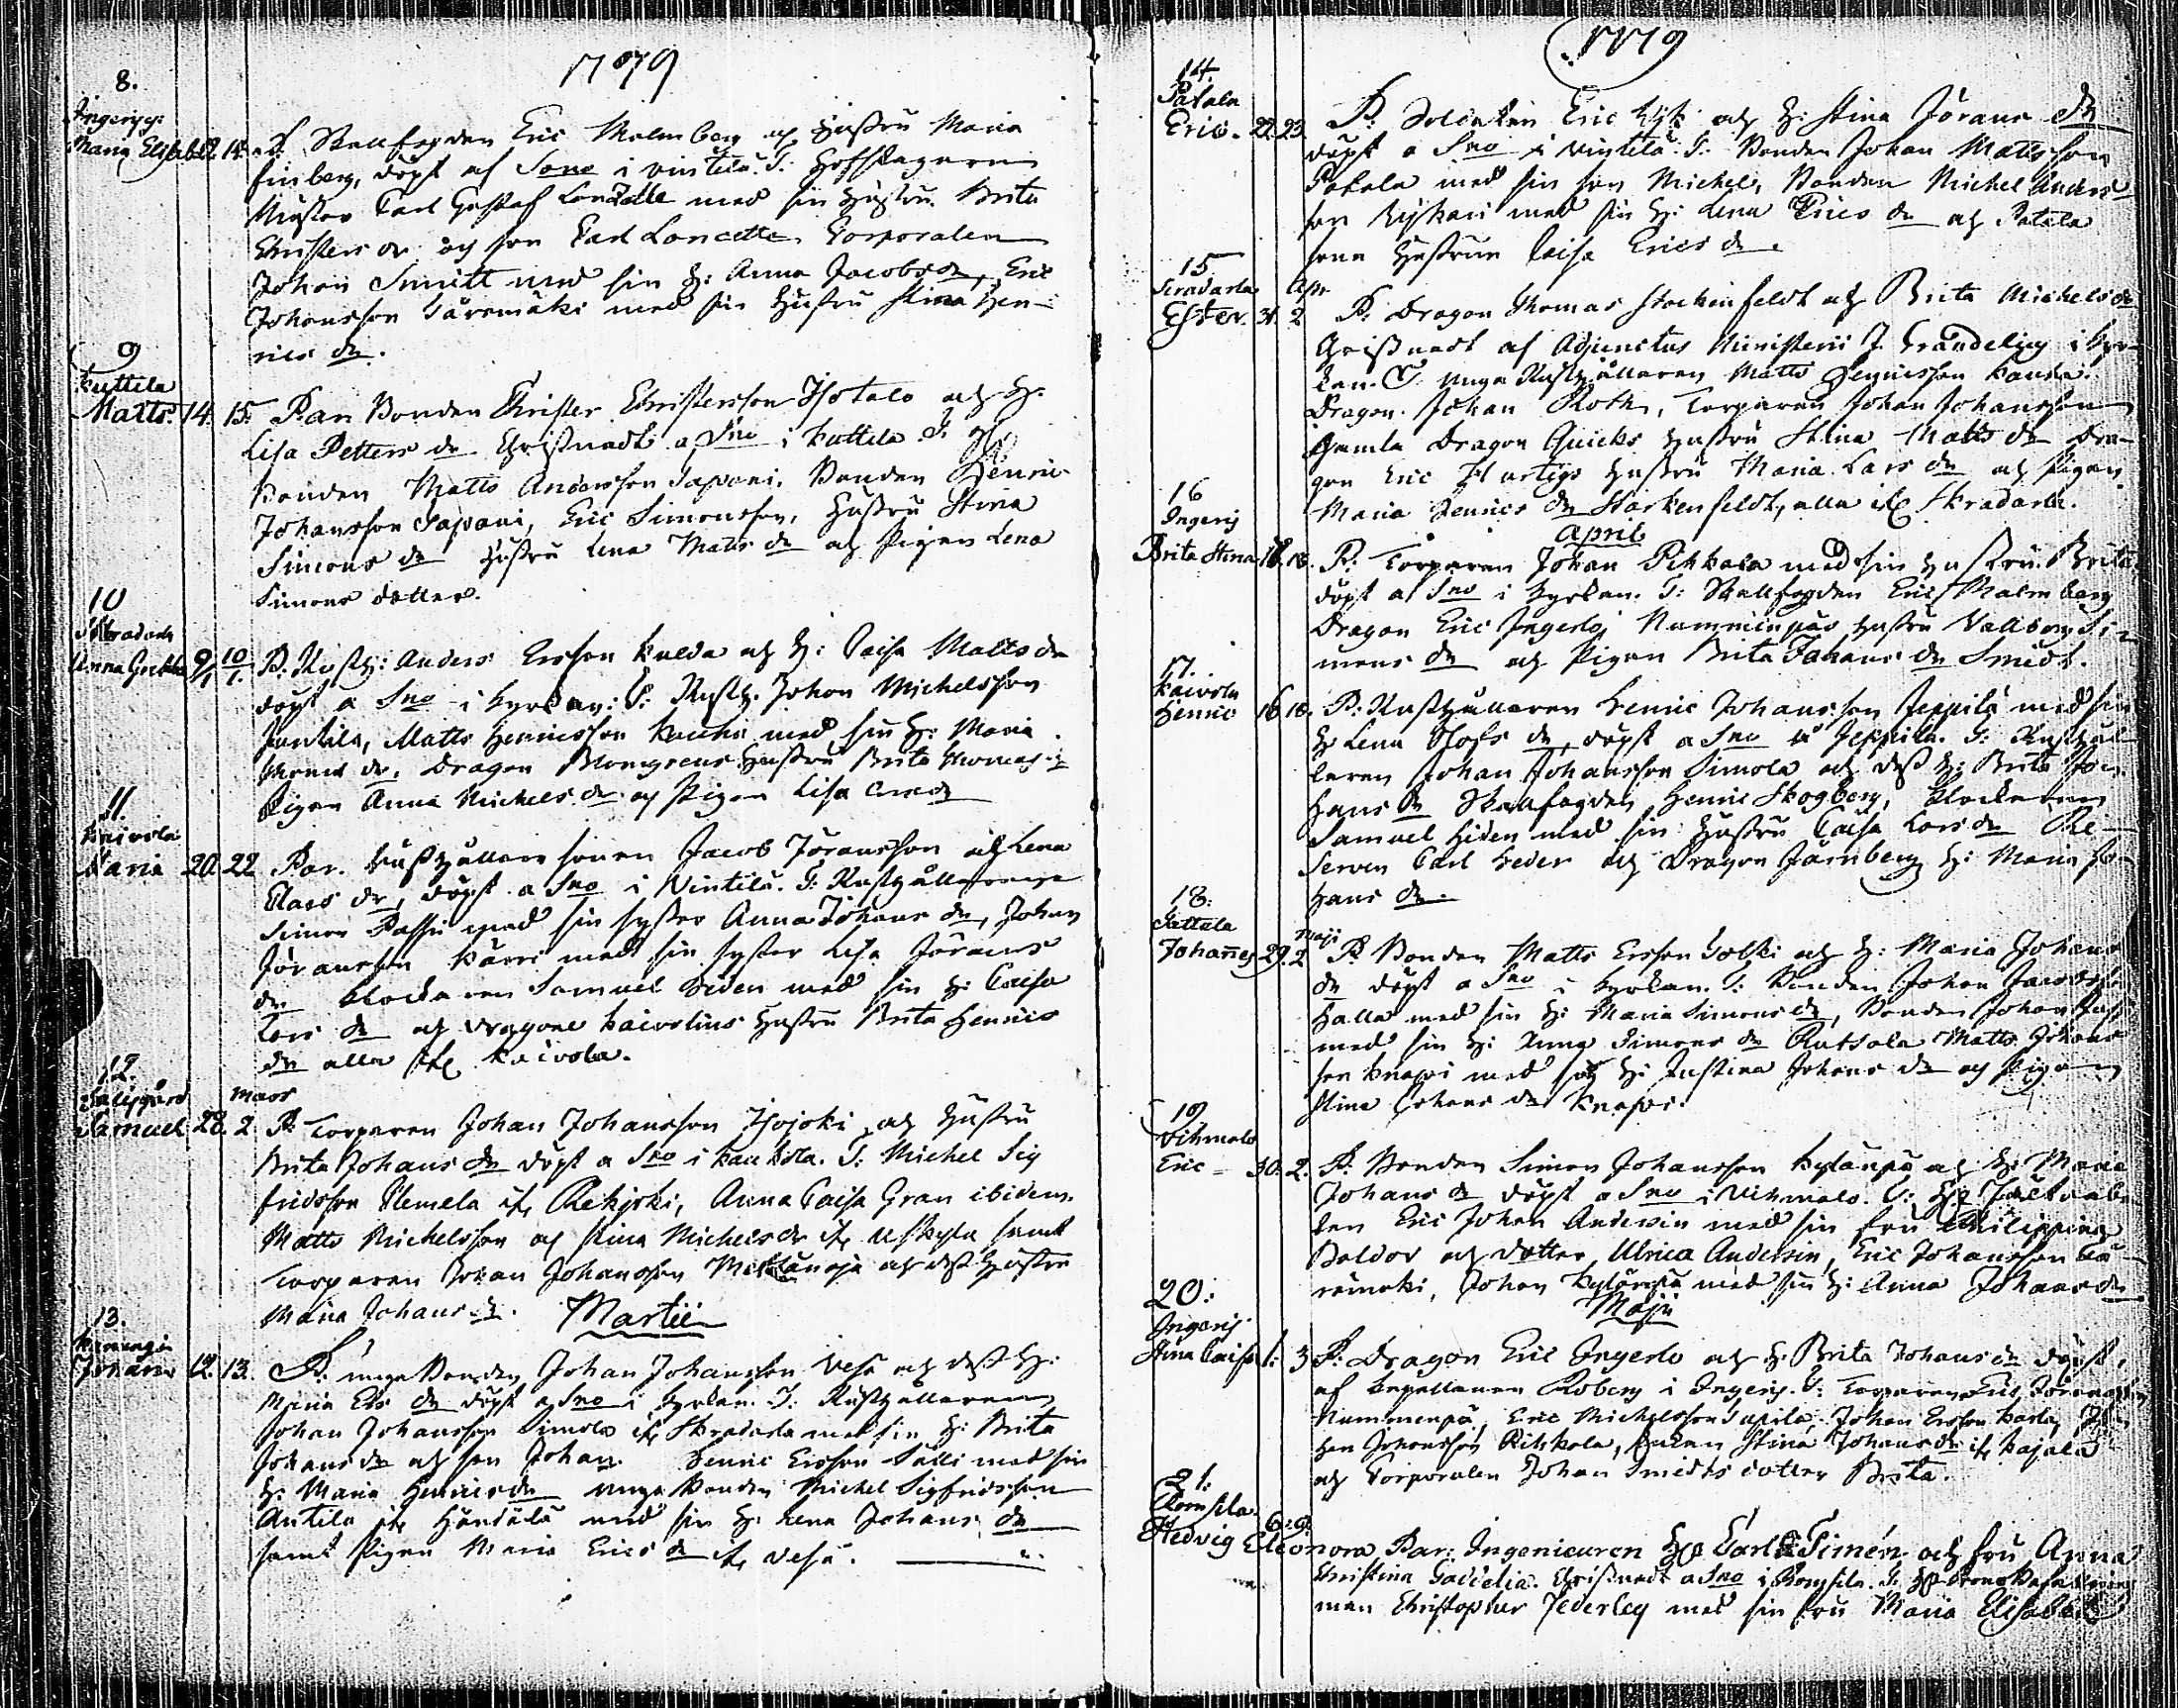 1779
8.
Ingerij
Maria Elisab. 12. 14. P. Skallfogden Eric Malmberg och Hustru Maria
Finberg, döpt af Sono i Vintelä. T: Hofslagaren
Mäster Carl Gustaf Lancette med sin Hustru Brita
Christers dr och son Carl Lancette, Corporalen
Johan Smitt med sin H: Anna Jacobs dr, Eric
Johansson Säremäki med sin Hustru Stina Hen-
rics dr.
9
Kuttila
Matts. 14. 15. Par. Bonden Christer Christersson Isotalo och H.
Lisa Petters dr Christnadt a Sno i Kuttila T.
Bonden Matts Andersson Sapani, Bonden Henric
Johansson Sapani, Eric Simonsson, Hustru Stina
Simons dr Hustru Lena Matts dr och Pigan Lena
Simons dotter.
10
Skradarla
Anna Gretha 9/1 10/1. P. Rusth: Anders Ersson Kulda och H: Caisa Matts dr
döpt a Sno i Kyrkan: T: Rusth. Johan Michelsson
Juntila, Matts Henricsson Kauka med sin H: Maria
dr, Dragon Blomgrens Hustru Brita Thomas dr
Pigan Anna Michels dr och Pigan Lisa
11.
Kaivola
Maria 20. 22 Par. Rusthållare sonen Jacob Göransson och Lena
Clas dr, döpt a Sno i Vintelä. T: Rusthållaren
Simon Passi med sin syster Anna Johans dr, Johan
Göransson Kärri med sin syster Lisa Görans
dr Klockaren Samuel Hiden med sin H: Caisa
Lars dr och Dragone Kaivolins Hustru Brita Henrics
dr alla if Kaivola.
12.
mars
Samuel 28. 2. P. Torparen Johan Johansson Isojoki och Hustru
Brita Johans dr döpt a Sno i Kaukola. T: Michel Sig
fridsson Uemela if Rekjoki, Anna Caisa Gran ibidem
Matts Michelsson och Stina Michels dr if Uskyla samt
Torparen Johan Johansson och dess Hustru
Maria Johans dr.
Martii
13.
Johan 12. 13. P. unga Bonden Johan Johansson Vesa och dess H:
Maria Ers dr döpt a Sno i Kyrkan. T: Rusthållaren
Johan Johansson Simola if Skradarla med sin H: Brita
Johans dr och son Johan. Henric Ersson Sälli med sin
H: Maria Henrics dr unga Bonden Michel Sigfridsson
Antila if Händälä med sin H: Lena Johans dr
samt Pigan Maria Erics dr if Vesa.
1779
14.
Patala
Eric. 22. 23. P. Soldaten Eric Kyk och H: Stina Jörans dr
döpt a Sno i Vintelä. T: Bonden Johan Matsson
Patala med sin son Michel, Bonden Michel Anders
son Kyhari med sin H: Lena Erics dr och Patala
sona Hustrun Caisa Erics dr.
15
Skradarla
Apr
Ester. 31. 2 P. Dragon Thomas Starkenfeldt och Brita Michels dr
Christnadt af Adjunctus Ministerii J. Grandelig i Kyr-
kan. T: unga Rusthållaren Matts Henricsson Kauka.
Dragon. Johan Roth, Torparen Johan Johansson
Gamla Dragon Quicks Hustru Stina Matts dr Dra-
gon Eric Hurtigs Hustru Maria Lars dr och Pigan
Maria Henrics dr Starkenfeldt, alla if Skradarla.
April
16
Ingerij
Brita Stina 16. 18. P: Torparen Johan Pihkala med sin Hustru Brita
döpt a Sno i Kyrkan. T: Skallfogden Eric Malmberg
Dragon Eric Ingerlo, Numminpäs Hustru Vallborg Si-
mons dr och Pigan Brita Johans dr Smidt.
17.
Kaivola
Henric 16. 18. P: Rusthållaren Henric Johansson Jeppilä med sin
H Lena Olofs dr, döpt a Sno i Jeppila. T: Rusthål
laren Johan Johansson Simola och dess H: Brita Jo-
hans dr Skallfogden Henric Skogberg, Klockaren
Samuel Hiden med sin Hustru Caisa Lars dr Re-
serven Carl Heder och Dragon Järnberg H: Maria Jo-
hans dr.
18.
Tattula
maji
Johannes 29. 2 P. Bonden Matts Ersson Solki och H: Maria Johans
dr döpt a Sno i Kyrkan. T: Bonden Johan Jacobss
Halla med sin H: Maria Simons dr, Bonden Johan
med sin H: Anna Simons dr Rutsala Matts Johans
son Knapi med sin H: Justina Johans dr och Pigan
Stina Johans dr Knapi.
19
Vihmalo
Eric 30. 2. P. Bonden Simon Johansson Kylänpä och H: Maria
Johans dr döpt a Sno i Vihmalo. T: Hr
ten Eric Johan Andersin med sin fru Philippina
Baldor och Dotter Ulrica Andersin, Eric Johansson Sä
rimaki, Johan Kylänpä med sin H: Anna Johans dr
Maji
20:
Ingerij
Stina Caisa 1. 3 P: Dragon Eric Ingerlo och H: Brita Johans dr döpt,
af Capellanen Roberg i Ingerij. T: Torparen Eric Jöransson
Nummenpä, Eric Michelsson Sapila. Johan Ersson Karla, Jo
han Johansson Rihkola, Enkan Stina Johans dr if Kajala
och Corporalen Johan Smidts dotter Brita.
21:
Romsila
6. 9.
Hedvig Eleonora Par: Ingenieuren Hr Carl Timén och fru Anna
Christina Gaddelia. Christnadt a Sno i Romsila. T: Hr
man Christopher Jederley med sin fru Maria Elisabet